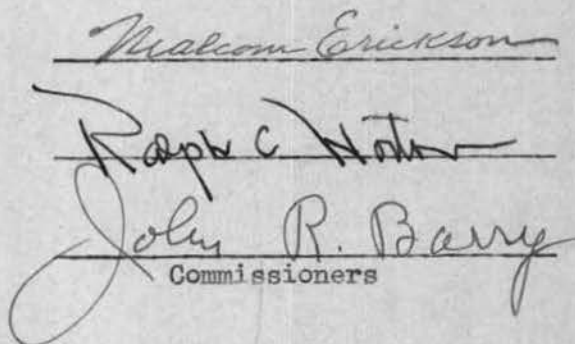 Malcom Erickson
Ralph C Horton
John R. Barry
Commissioners